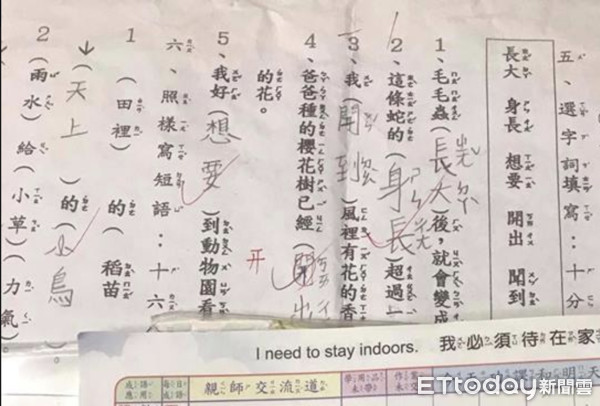 五、選字詞填寫：十分
長大 身長 想要 開出 聞到
1、毛毛蟲（長大）後，就會變成
2、這條蛇的（身長）超過一
3、我（聞到）風裡有花的香
4、爸爸種的櫻花樹已經（開出
的花。
5、我好（想要）到動物園看
开
六、照樣寫短語：十六
1（田裡）的（稻苗
↓（天上）的（小鳥）。
2（雨水）給（小草）力氣。
I need to stay indoors. 我必須待在家
親師交流道
ETtoday新聞雲